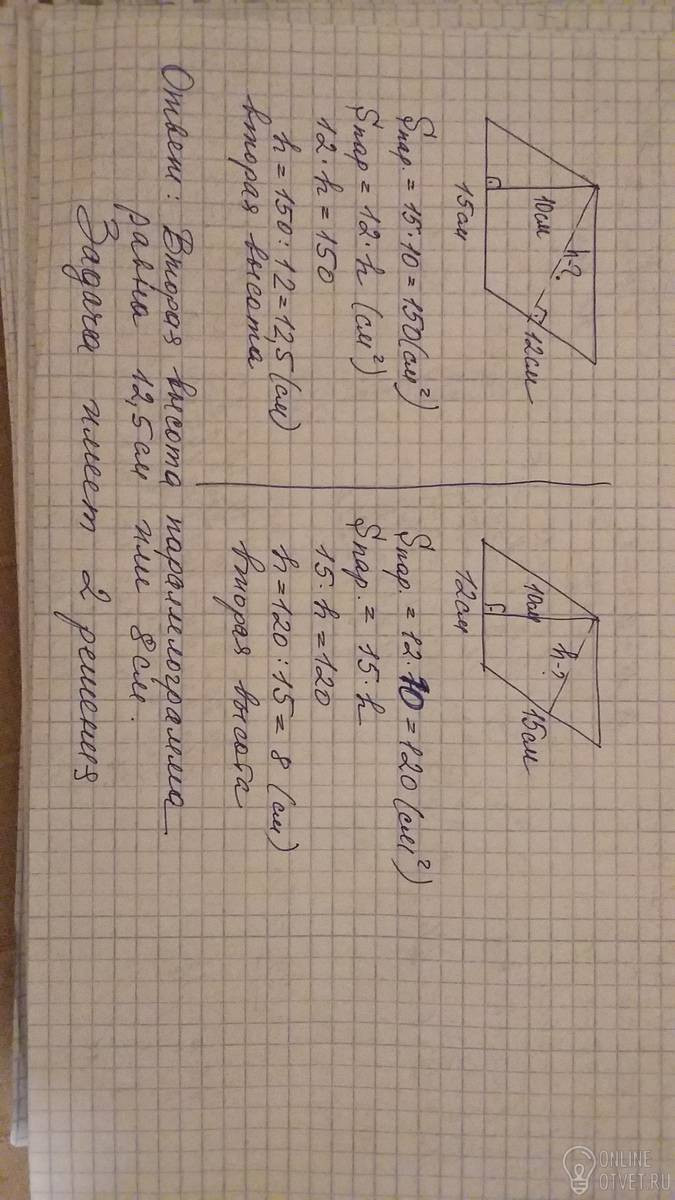 10см
h-?
12см
15см
Sпар. = 15·10 = 150 (см²)
Sпар = 12·h (см²)
12·h = 150
h = 150 : 12 = 12,5 (см)
вторая высота
10см
h-?
15см
12см
Sпар. = 12·10 = 120 (см²)
Sпар. = 15·h
15·h = 120
h = 120 : 15 = 8 (см)
вторая высота
Ответ: Вторая высота параллелограмма
равна 12,5 см или 8 см.
Задача имеет 2 решения
ONLINE
OTVET.RU